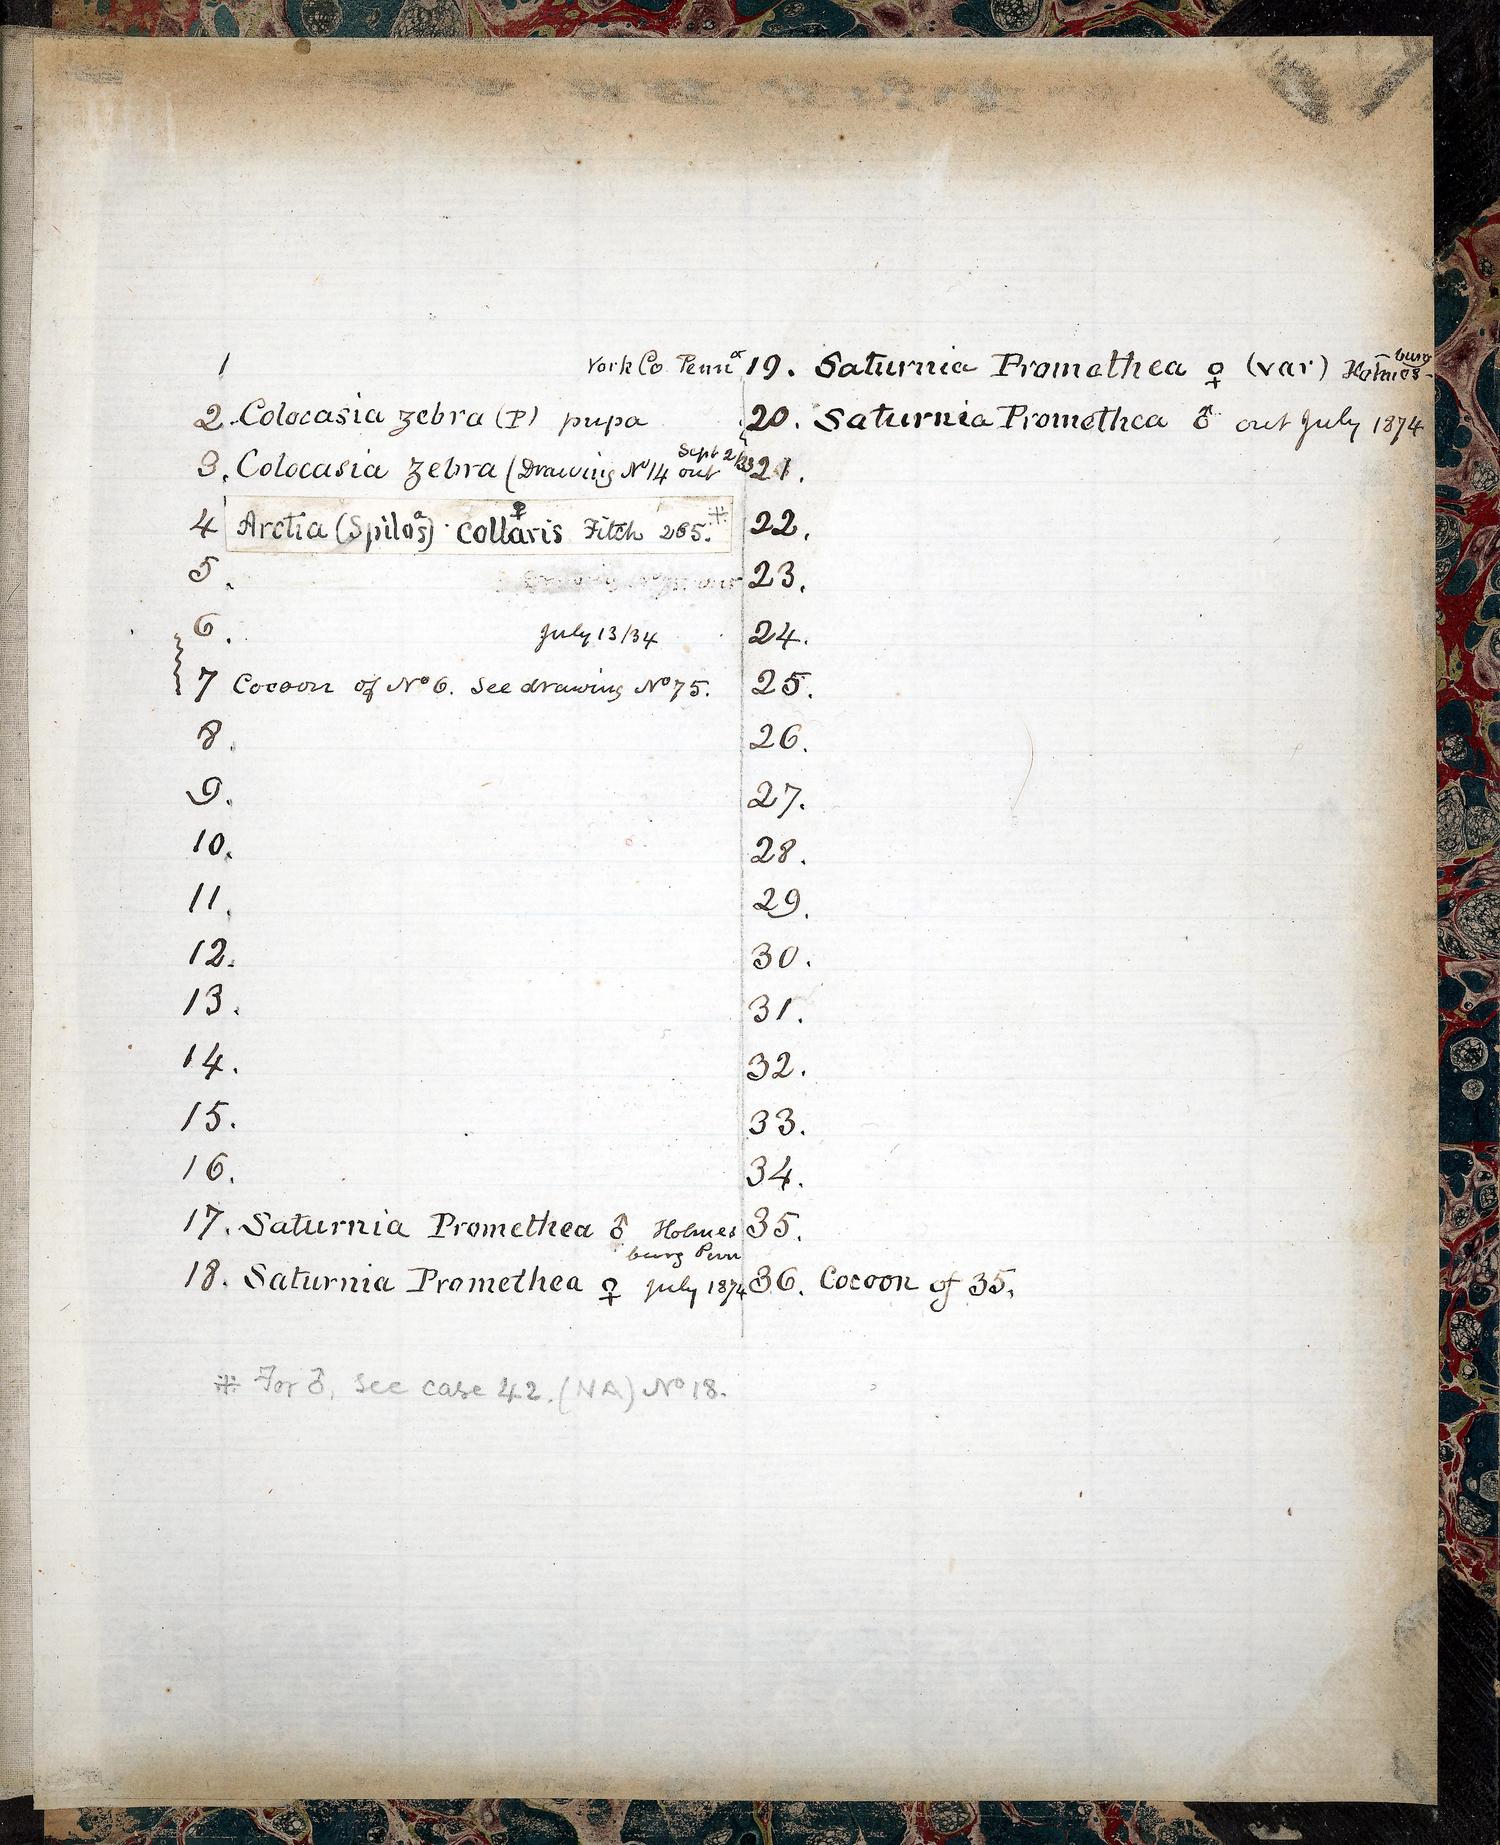 1 York Co Penn<sup>a</sup>
2. Colocasia zebra (P) pupa
3. Colocasia zebra (Drawing Nº 14 out Sept 2/33
4 Arctia (Spilosª) Collaris ♀ Fitch 265. ⁜
5.
6. July 13/34
7 Cocoon of Nº 6. See drawing Nº 75.
8.
9.
10.
11.
12.
13.
14.
15.
16.
17. Saturnia Promethea ♂ Holmes
burg Penn
18. Saturnia Promethea ♀ July 1874
19. Saturnia Promethea ♀ (var) Holmes-
burg
20. Saturnia Promethea ♂ out July 1874
21.
22.
23.
24.
25.
26.
27.
28.
29.
30.
31.
32.
33.
34.
35.
36. Cocoon of 35.
⁜ For ♂, see case 42. (NA) Nº 18.